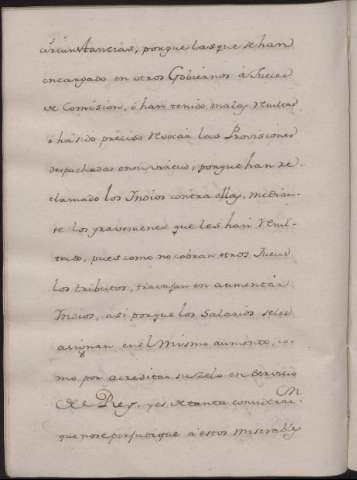 circunstancias, porque las que se han
encargado en otros Gobiernos à Jueces
de Comision, ò han tenido malas resultas
ò ha sido preciso revocar las Provisiones
despachadas en su razón, porque han re
clamado los Yndios contra ellas, median
te los gravamenes que les han resul
tado, pues como no cobran otros Jueces
los tributos, travajan en aumentar
Yndios, asi porque los Salarios se les
asignan en el mismo aumento, co
mo por acreditar su Zelo en Servicio
de el Rey, y es de tanta considerac.on
que no se perjudique à estos miserables